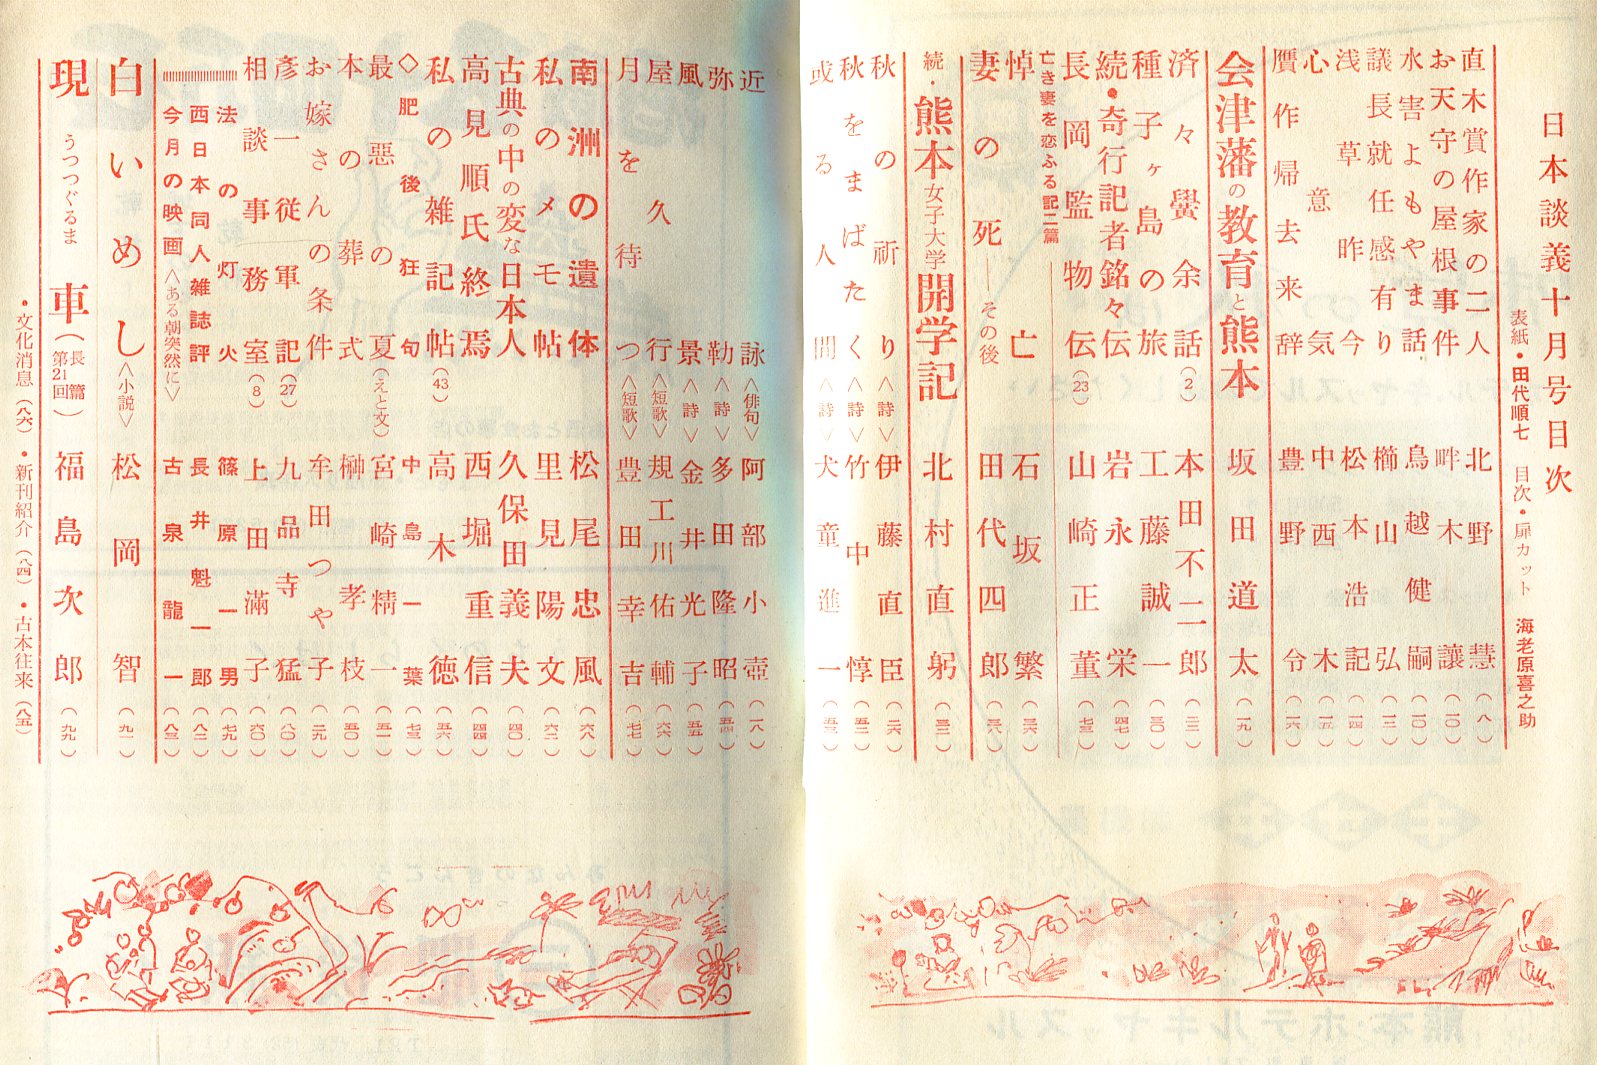 日本談義十月号目次
表紙・田代順七　目次・扉カット　海老原喜之助
直木賞作家の二人　北野　慧（八）
お天守の屋根事件　畔木　譲（一〇）
水害よもやま話　鳥越健嗣（一〇）
議長就任感有り　櫛山　弘（一二）
浅草昨今　松本浩記（一四）
心意気　中西　木（一五）
贋作帰去来辞　豊野　令（一六）
会津藩の教育と熊本　坂田道太（一九）
済々黌余話(2)　本田不二郎（二二）
種子ヶ島の旅　工藤誠一（三〇）
続・奇行記者銘々伝　岩永　栄（四七）
長岡監物伝(23)　山崎正董（七三）
亡き妻を恋ふる記二篇
悼亡　石坂　繁（三六）
妻の死―その後　田代四郎（三八）
続・熊本女子大学開学記　北村直躬（三二）
秋の祈り＜詩＞伊藤直臣（二六）
秋をまばたく＜詩＞竹中　惇（五二）
或る人間＜詩＞犬童進一（五三）
近詠＜俳句＞阿部小壺（一八）
弥勒＜詩＞多田隆昭（五四）
風景＜詩＞金井光子（五五）
屋久行＜短歌＞規工川佑輔（六六）
月を待つ＜短歌＞豊田幸吉（七七）
南洲の遺体　松尾忠風（六八）
私のメモ帖　里見陽文（六二）
古典の中の変な日本人　久保田義夫（四〇）
高見順氏終焉　西堀重信（四四）
私の雑記帖(43)　高木　徳（五六）
◇肥後狂句　中島一葉（七三）
最悪の夏（えと文）宮崎精一（五一）
本の葬式　榊　孝枝（五〇）
お嫁さんの条件　牟田つや子（二九）
彦一従軍記(27)　九品寺猛（八〇）
相談事務室(8)　上田満子（六〇）
法の灯火　篠原一男（七九）
西日本同人雑誌評　長井魁一郎（八二）
今月の映画＜ある朝突然に＞　古泉龍一（八三）
白いめし＜小説＞　松岡　智（九一）
現　うつつぐるま　車（長篇第21回）福島次郎（九九）
・文化消息（八六）・新刊紹介（八四）・古本往来（八五）